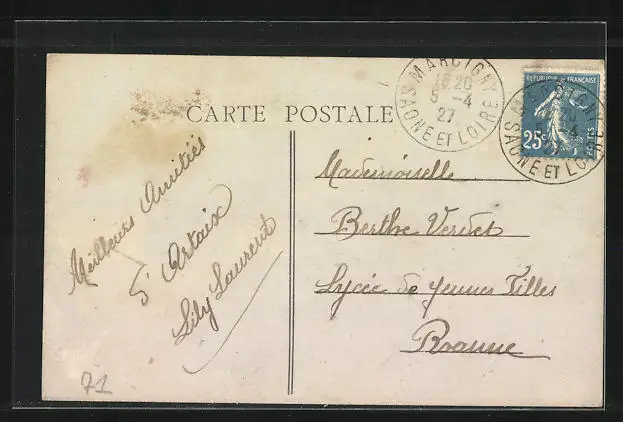 CARTE POSTALE
MARCIGNY
16 20
5 -4
27
SAONE ET LOIRE
REPUBLIQUE FRANÇAISE
25c
POSTES
MARCIGNY
20
5 -4
SAONE ET LOIRE
Meilleurs Amitiés
d'Artaix
Lily Laurent
71
Mademoiselle
Berthe Verdet
Lycée de Jeunes Filles
Roanne